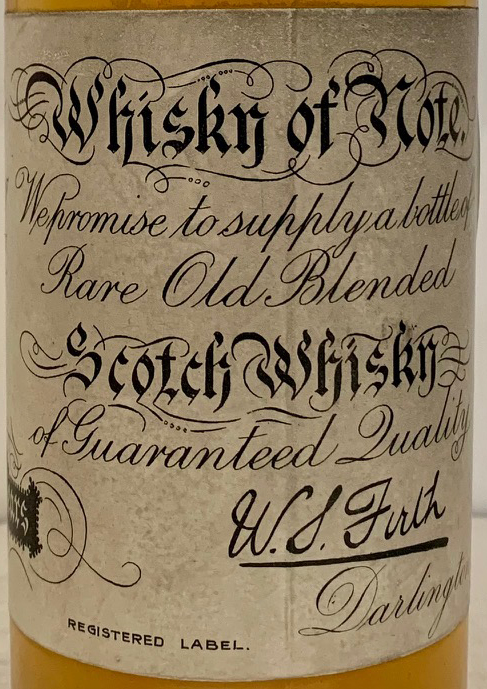 Whisky of Note.
We promise to supply a bottle of
Rare Old Blended
Scotch Whisky
of Guaranteed Quality
W.S. Firth
Darlington
REGISTERED LABEL.